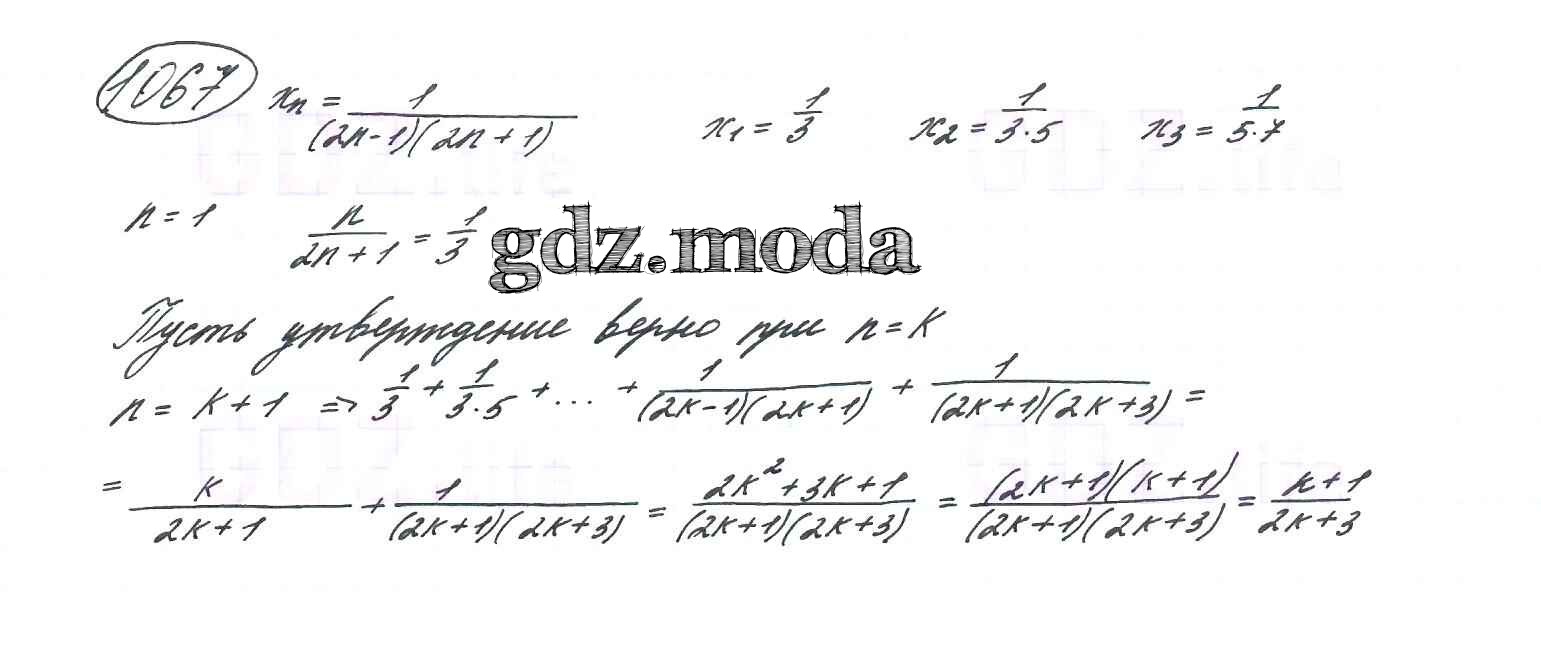 1067 xₙ = 1/((2n-1)(2n+1)) x₁ = 1/3 x₂ = 1/(3·5) x₃ = 1/(5·7)
n = 1 n/(2n+1) = 1/3 gdz.moda
Пусть утверждение верно при n = k
n = k+1 => 1/3 + 1/(3·5) + ... + 1/((2k-1)(2k+1)) + 1/((2k+1)(2k+3)) =
= k/(2k+1) + 1/((2k+1)(2k+3)) = (2k²+3k+1)/((2k+1)(2k+3)) = ((2k+1)(k+1))/((2k+1)(2k+3)) = (k+1)/(2k+3)